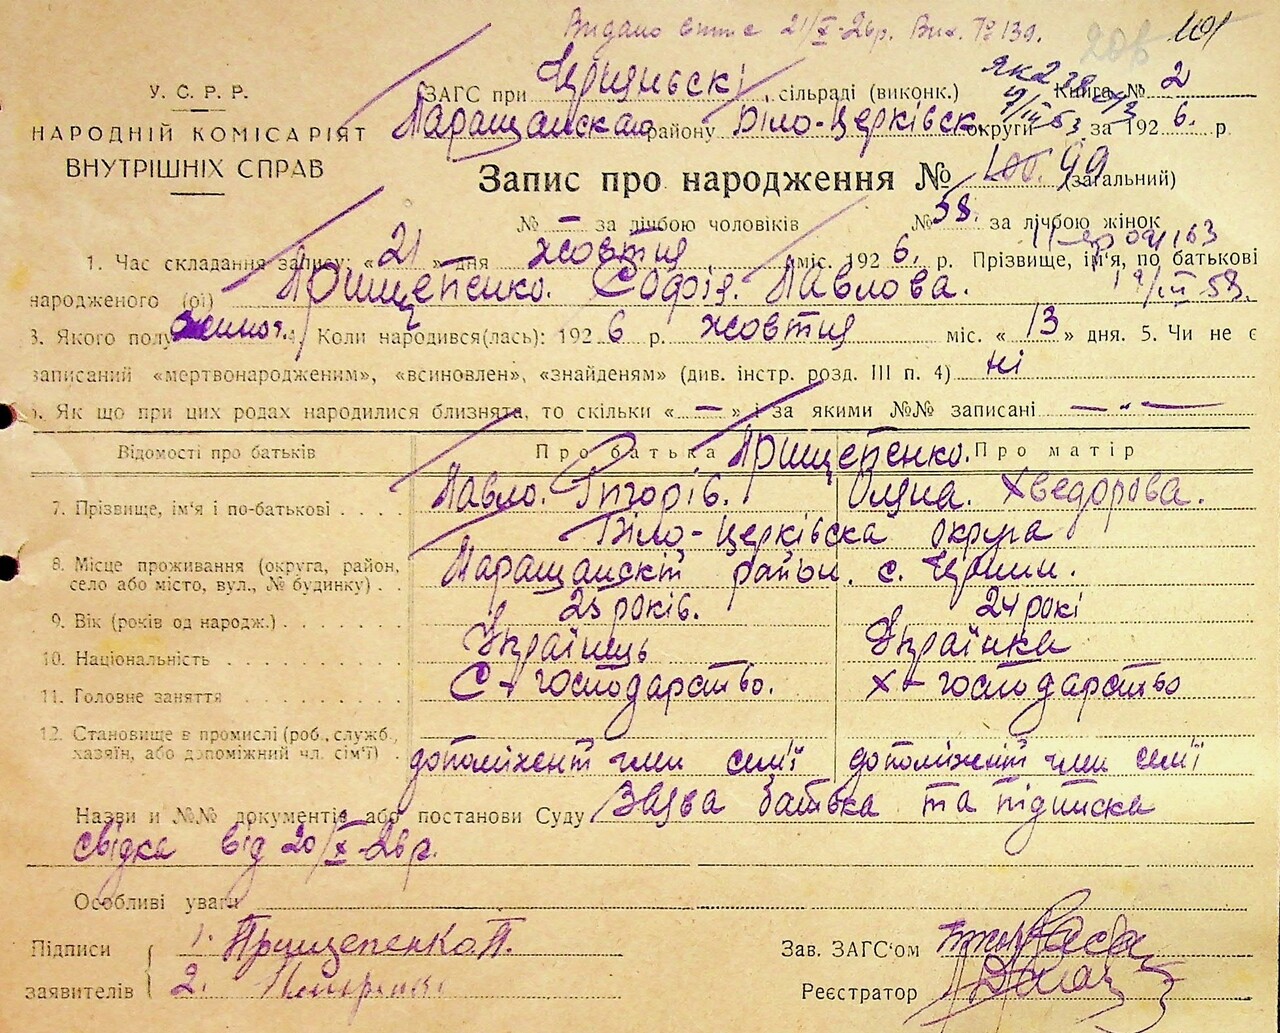 Видано витяг 21/X-26р. Вих. № 139.
208 101
У. С. Р. Р.
НАРОДНІЙ КОМІСАРІЯТ
ВНУТРІШНІХ СПРАВ
ЗАГС при сільраді (виконк.) Книга № 2
району Біло-Церківск округи за 1926. р.
Запис про народження № 99 (загальний)
№ – за лічбою чоловіків № 58. за лічбою жінок
1. Час складання запису: «21» дня жовтня міс. 1926. р. Прізвище, ім'я, по батькові
народженого (ої) Прищепенко. Софія. Павлова.
3. Якого полу Коли народився(лась): 1926 р. жовтня міс. «13» дня. 5. Чи не є
записаний «мертвонародженим», «всиновлен», «знайденям» (див. інстр. розд. III п. 4) ні
Як що при цих родах народилися близнята, то скільки «–» і за якими №№ записані — „ —
Відомості про батьків Про батька Прищепенко. Про матір
7. Прізвище, ім'я і по-батькові . . . . Павло. Григорів. Олена. Хведорова.
Біло-Церківска округа
8. Місце проживання (округа, район,
село або місто, вул., № будинку) . . район. с.
9. Вік (років од народж.) . . . . . . 25 років. 24 рокі
10. Національність . . . . . . . . . Українець Українка
11. Головне заняття . . . . . . . . С-господарство. Х-господарство
12. Становище в промислі (роб., служб.,
хазяїн, або допоміжний чл. сім'ї) . допоміжент член семʼї допоміжент член семʼї
Назви и №№ документів або постанови Суду Заява батька та підписка
свідка від 20/X-26р.
Особливі уваги
Підписи 1. Прищепенко. П. Зав. ЗАГС'ом
заявителів 2. Реєстратор